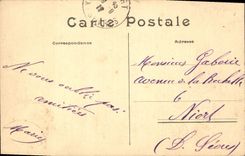 Carte Postale
Correspondance
Adresse
Monsieur Gaborie
avenue de la Rochelle
6
Niort
(D. Sèvres)
Ne vous oublie pas
amitiés
Marie